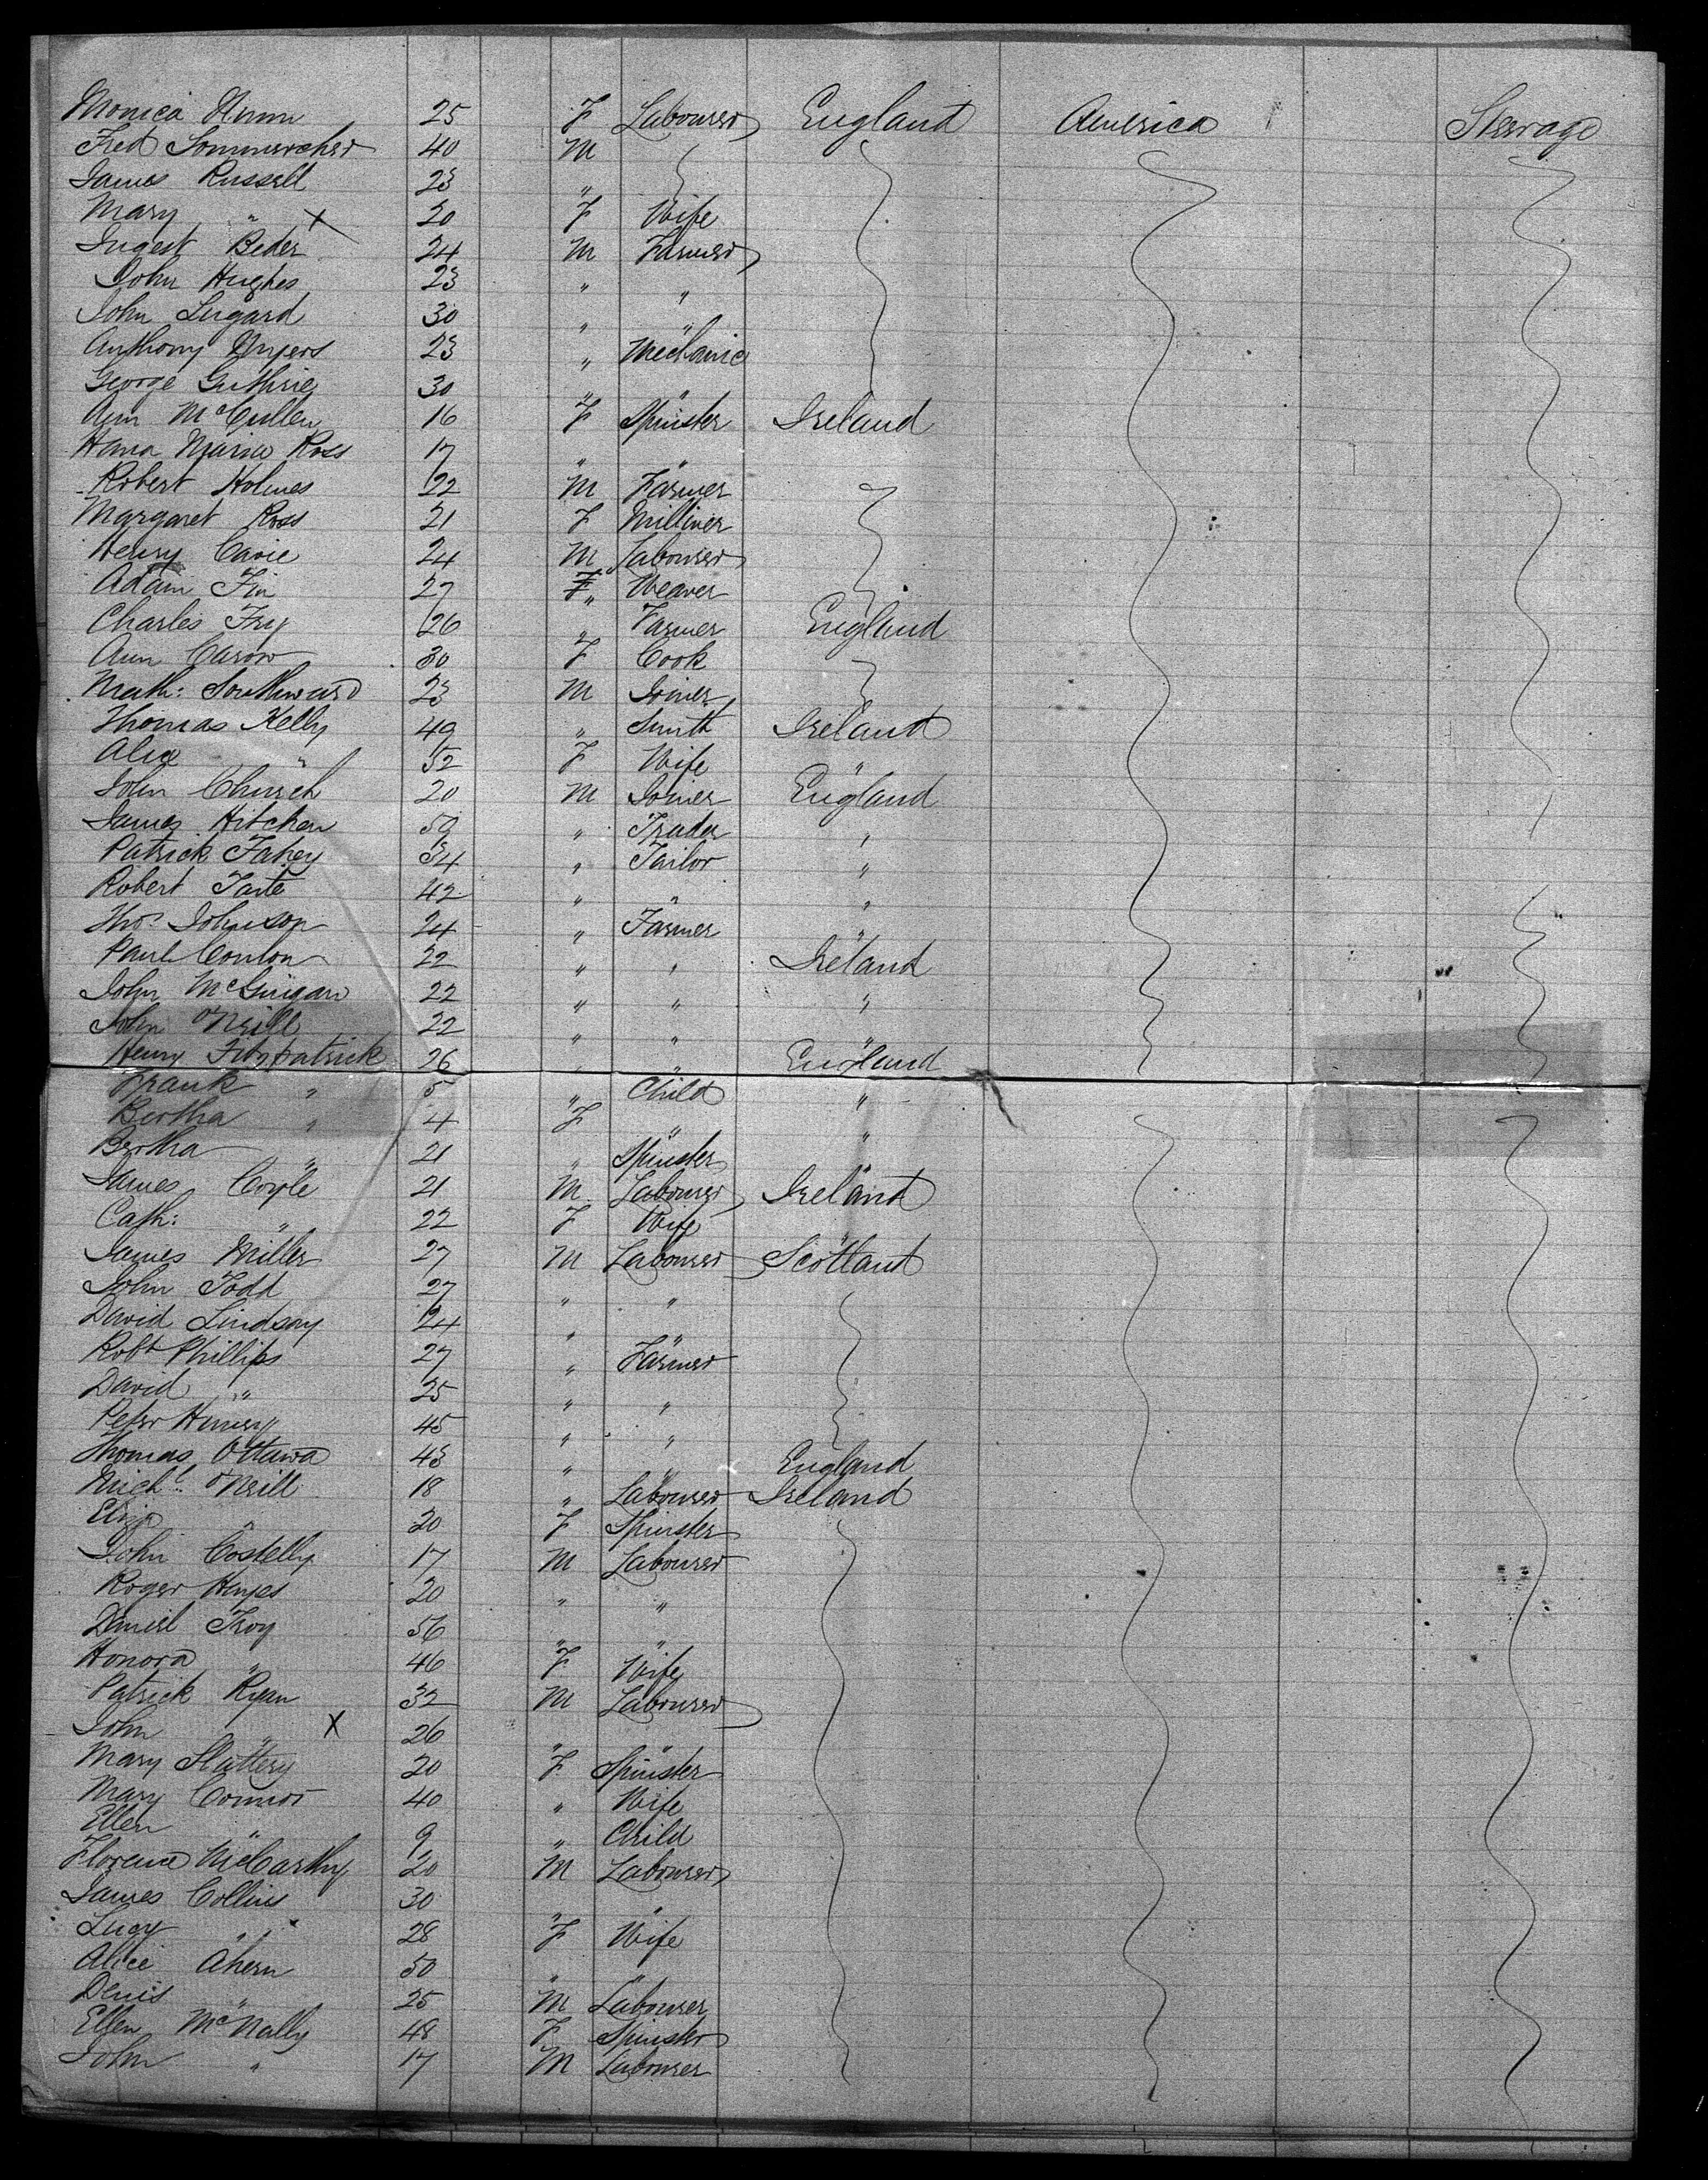 Monica 25 F Labourer England America Steerage
Fred 40 M
James Russell 23 "
Mary " X 20 F Wife
Beder 24 M Farmer
John Hughes 23 " "
John Lugard 30 " "
Anthony Myers 23 " Mechanic
George Guthrie 30 " "
Ann McCullen 16 F Spinster Ireland
Hana Maria Ross 17 " "
Robert Holmes 22 M Farmer
Margaret Ross 21 F Milliner
Henry Cavie 24 M Labourer
Adam Fin 27 " Weaver
Charles Fry 26 " Farmer England
Ann Carow 30 F Cook
Math: Southward 23 M Joiner
Thomas Kelly 49 " Smith Ireland
Alice " 52 F Wife "
John Church 20 M Joiner England
James Hitchen 59 " Trader "
Patrick Fahey 34 " Tailor "
Robert Taite 42 " " "
Thos Johnson 24 " Farmer "
Paul Conlon 22 " " Ireland
John McGuigan 22 " " "
John O'Neill 22 " " "
Henry Fitzpatrick 26 " " England
Frank " 5 " Child "
Bertha " 4 F " "
Bertha " 21 " Spinster "
James Coyle 21 M Labourer Ireland
Cath: " 22 F Wife "
James Miller 27 M Labourer Scotland
John Todd 27 " "
David Lindsay 24 " "
Robt Phillips 27 " Farmer
David " 25 " "
Peter 45 " "
Thomas Ottawa 43 " " England
Michl O'Neill 18 " Labourer Ireland
Eliza " 20 F Spinster
John Costelly 17 M Labourer
Roger Hayes 20 " "
Daniel Troy 56 " "
Honora " 46 F Wife
Patrick Ryan 32 M Labourer
John " X 26 " "
Mary Slattery 20 F Spinster
Mary Connor 40 " Wife
Ellen " 9 " Child
Florence McCarthy 20 M Labourer
James Collins 30 " "
Lucy " 28 F Wife
Alice Ahern 50 " "
Denis " 25 M Labourer
Ellen McNally 48 F Spinster
John " 17 M Labourer